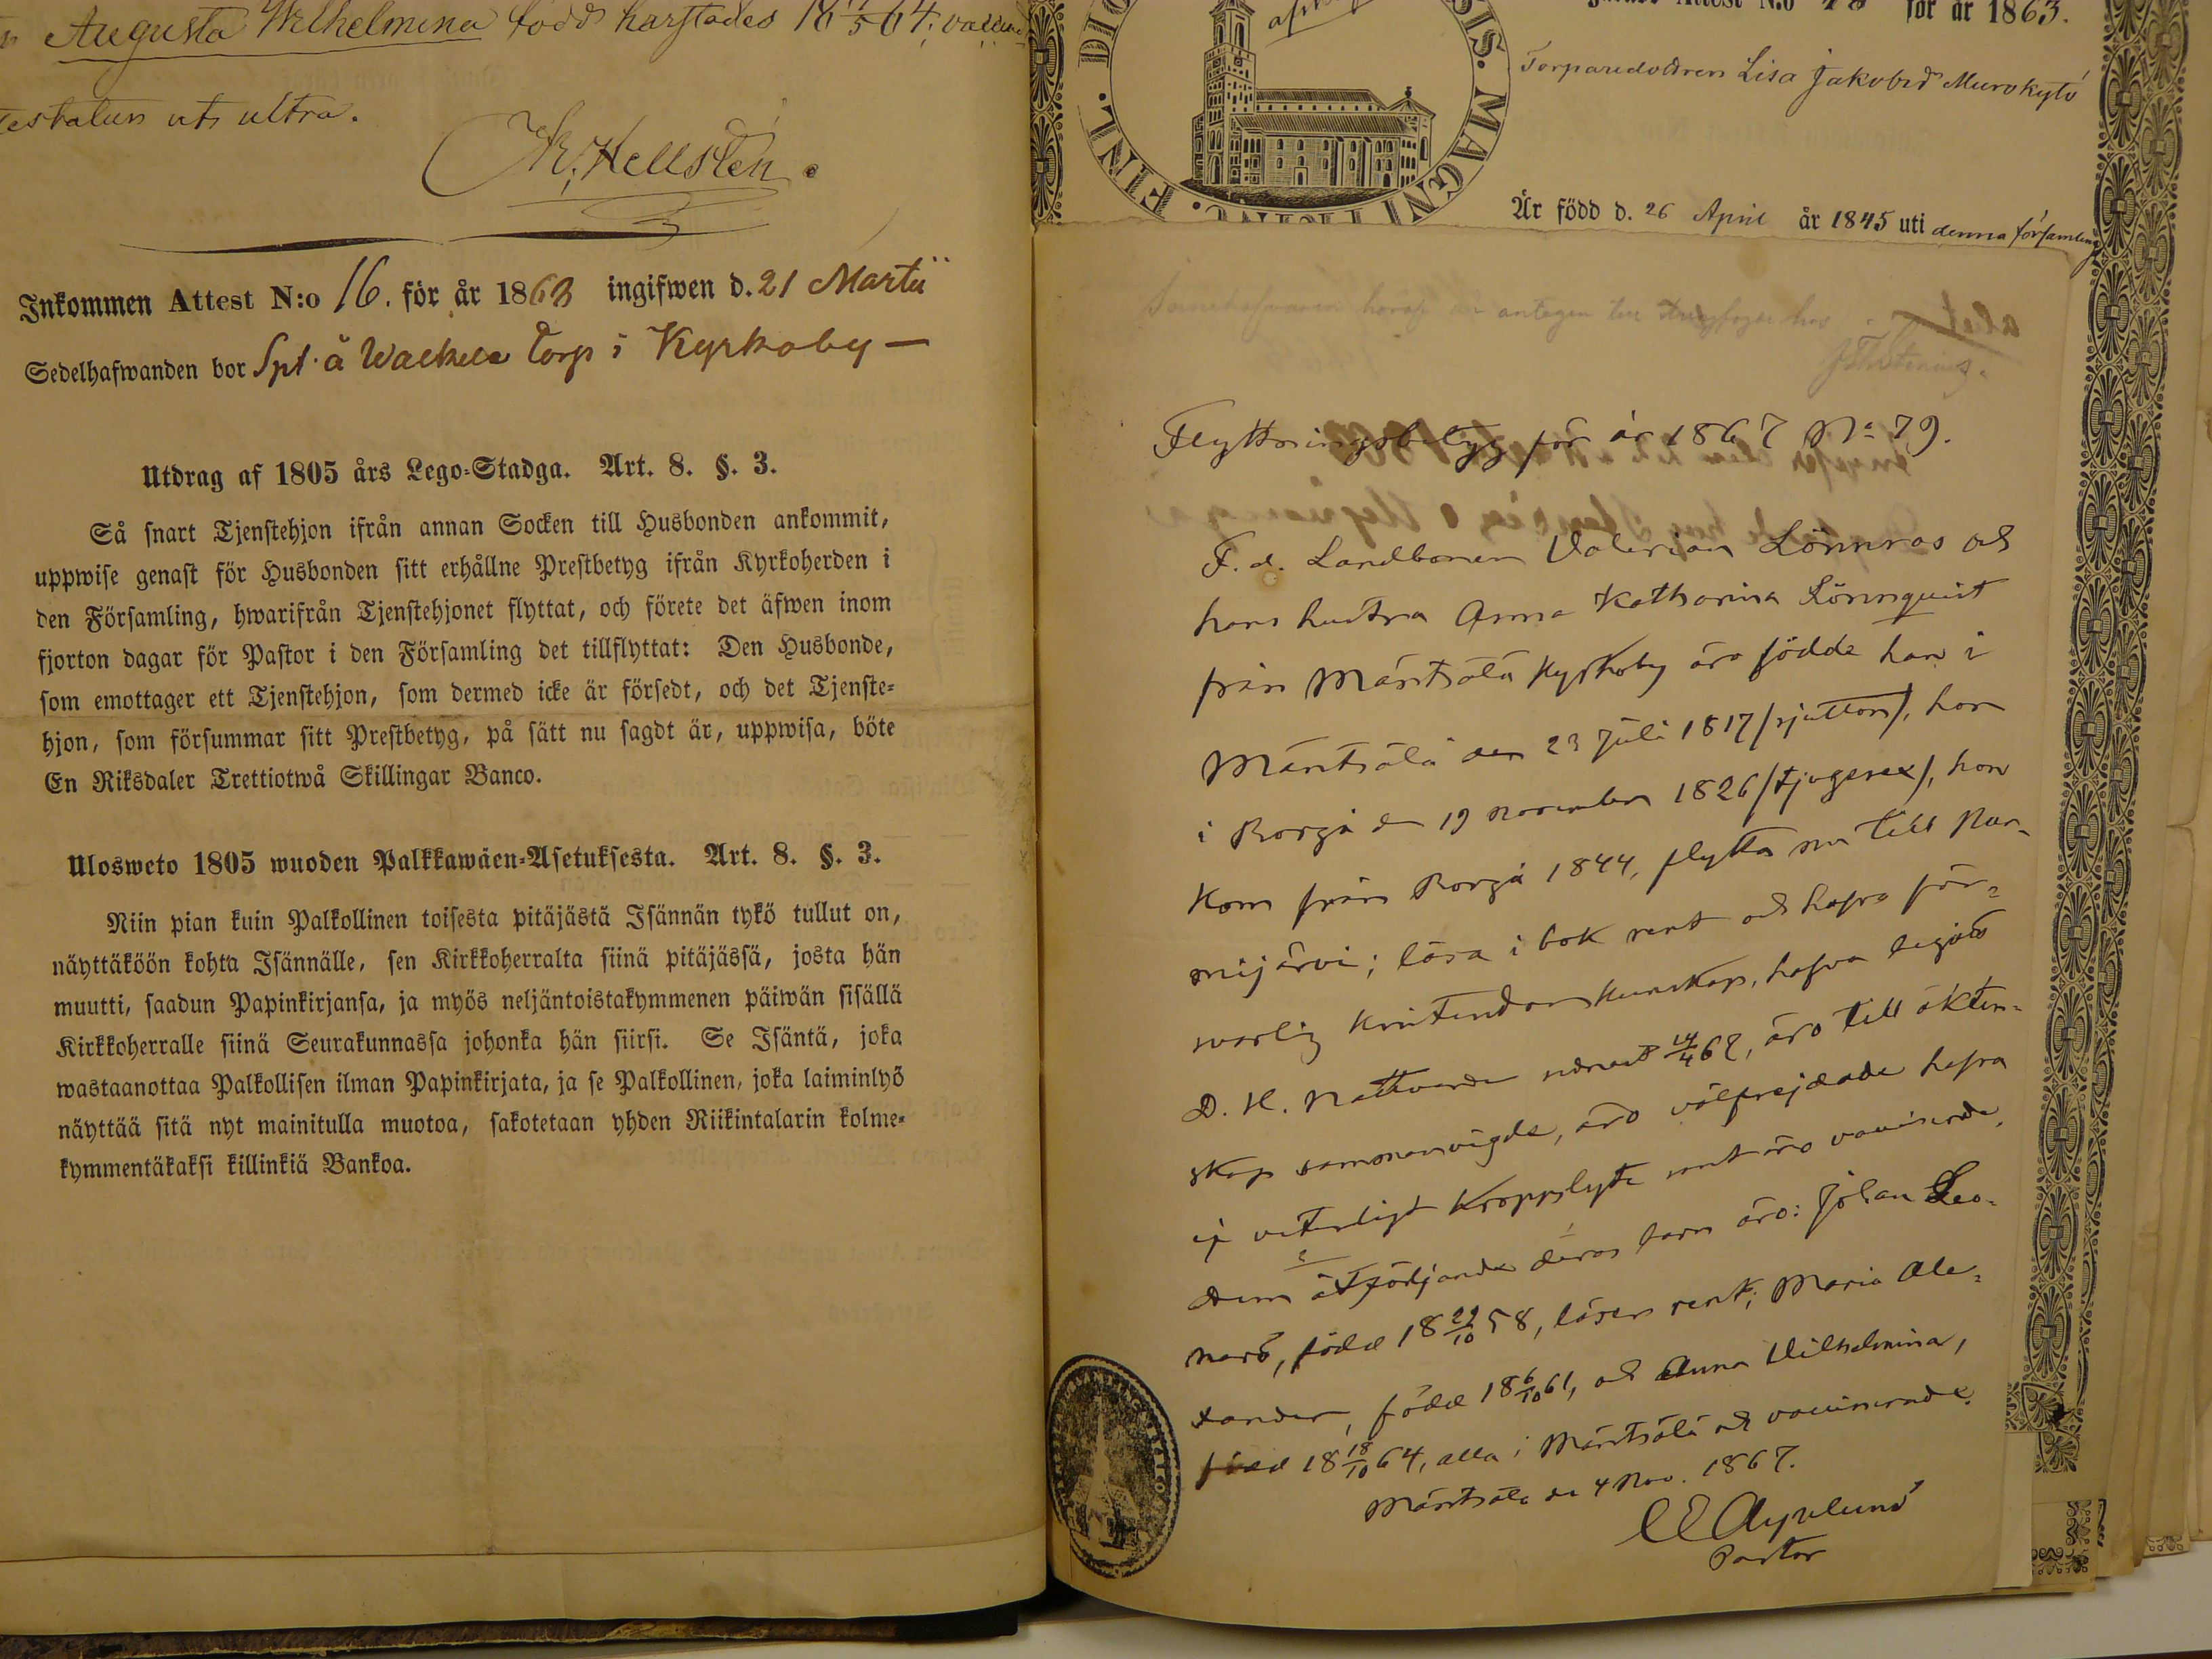 Augusta Wilhelmina född härstädes 18 64,
ut ultra.
Hellsten.
Inkommen Attest N:o 16. för år 1868 ingifwen d. 21 Martii
Sedelhafwanden bor Spt. å Torp i Kyrkoby —
Utdrag af 1805 års Lego-Stadga. Art. 8. §. 3.
Så snart Tjenstehjon ifrån annan Socken till Husbonden ankommit,
uppwise genast för Husbonden sitt erhållne Prestbetyg ifrån Kyrkoherden i
den Församling, hwarifrån Tjenstehjonet flyttat, och förete det äfwen inom
fjorton dagar för Pastor i den Församling det tillflyttat: Den Husbonde,
som emottager ett Tjenstehjon, som dermed icke är försedt, och det Tjenste-
hjon, som försummar sitt Prestbetyg, på sätt nu sagdt är, uppwisa, böte
En Riksdaler Trettiotwå Skillingar Banco.
Ulosweto 1805 wuoden Palkkawäen-Asetuksesta. Art. 8. §. 3.
Niin pian kuin Palkollinen toisesta pitäjästä Isännän tykö tullut on,
näyttäköön kohta Isännälle, sen Kirkkoherralta siinä pitäjässä, josta hän
muutti, saadun Papinkirjansa, ja myös neljäntoistakymmenen päiwän sisällä
Kirkkoherralle siinä Seurakunnassa johonka hän siirsi. Se Isäntä, joka
wastaanottaa Palkollisen ilman Papinkirjata, ja se Palkollinen, joka laiminlyö
näyttää sitä nyt mainitulla muotoa, sakotetaan yhden Riikintalarin kolme-
kymmentäkaksi killinkiä Bankoa.
för år 1863.
Torparedottren Lisa Jakobsdr Murokytö
SIS. MAGNI FINL. DIO
Är född d. 26 April år 1845 uti denna församling
Flyttningsbetyg för år 1867 No 79.
F. d. Landbonen Valerian Lönnros och
hans hustru Anna Katharina Lönnquist
från Mäntsälä Kyrkoby äro födde han i
Mäntsälä den 23 Juli 1817 /sjutton/, hon
i Borgå den 19 november 1826 /tjugesex/, hon
kom från Borgå 1844, flytta nu till Nur-
mijärvi; läsa i bok rent och hafva för-
svarlig kristendomskunskap, hafva begått
D. H. Nattvard senast 14/4 67, äro till äkten-
skap sammanvigde, äro välfrejdade hafva
ej veterligt kroppslyte samt äro vaccinerade.
Dem åtföljande deras barn äro: Johan Leo-
nard, född 18 29/10 58, läser rent; Maria Ale-
xandra, född 18 6/10 61, och Anna Vilhelmina,
född 18 18/10 64, alla i Mäntsälä och vaccinerade.
Mäntsälä den 4 Nov. 1867.
Pastor